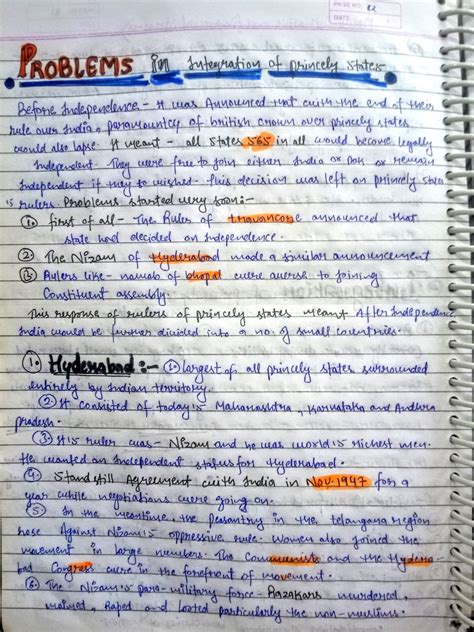 PAGE NO: 82
DATE:
PROBLEMS in Integration of princely states
Before Independence - It was Announced that with the end of their
rule over India, paramountcy of british crown over princely states
would also lapse. It meant - all states 565 in all would become legally
Independent. They were free to join either India or Pak or remain
Independent if they so wished. This decision was left on princely states
rulers. Problems started very soon:-
1. first of all - The Ruler of travancore announced that
state had decided on Independence.
2 The Nizam of Hyderabad made a similar announcement
3 Rulers like - nawab of bhopal were averse to joining
Constituent assembly.
This response of rulers of princely states meant After Independence
India would be further divided into a no. of small countries.
1. Hyderabad :- 1. largest of all princely states surrounded
entirely by Indian territory.
2. It consisted of today's Maharashtra, Karnataka and Andhra
pradesh.
3. It's ruler was - Nizam and he was world's richest men.
He wanted an Independent status for Hyderabad.
4. Standstill Agreement with India in Nov. 1947 for a
year while negotiations were going on.
5 In the meantime, the peasantry in the telangana region
rose Against Nizam's oppressive rule. Women also joined the
movement in large numbers. The Communists and the Hydera-
bad Congress were in the forefront of movement.
6. The Nizam's para-military force - Razakars murdered,
maimed, Raped and looted particularly the non-muslims.